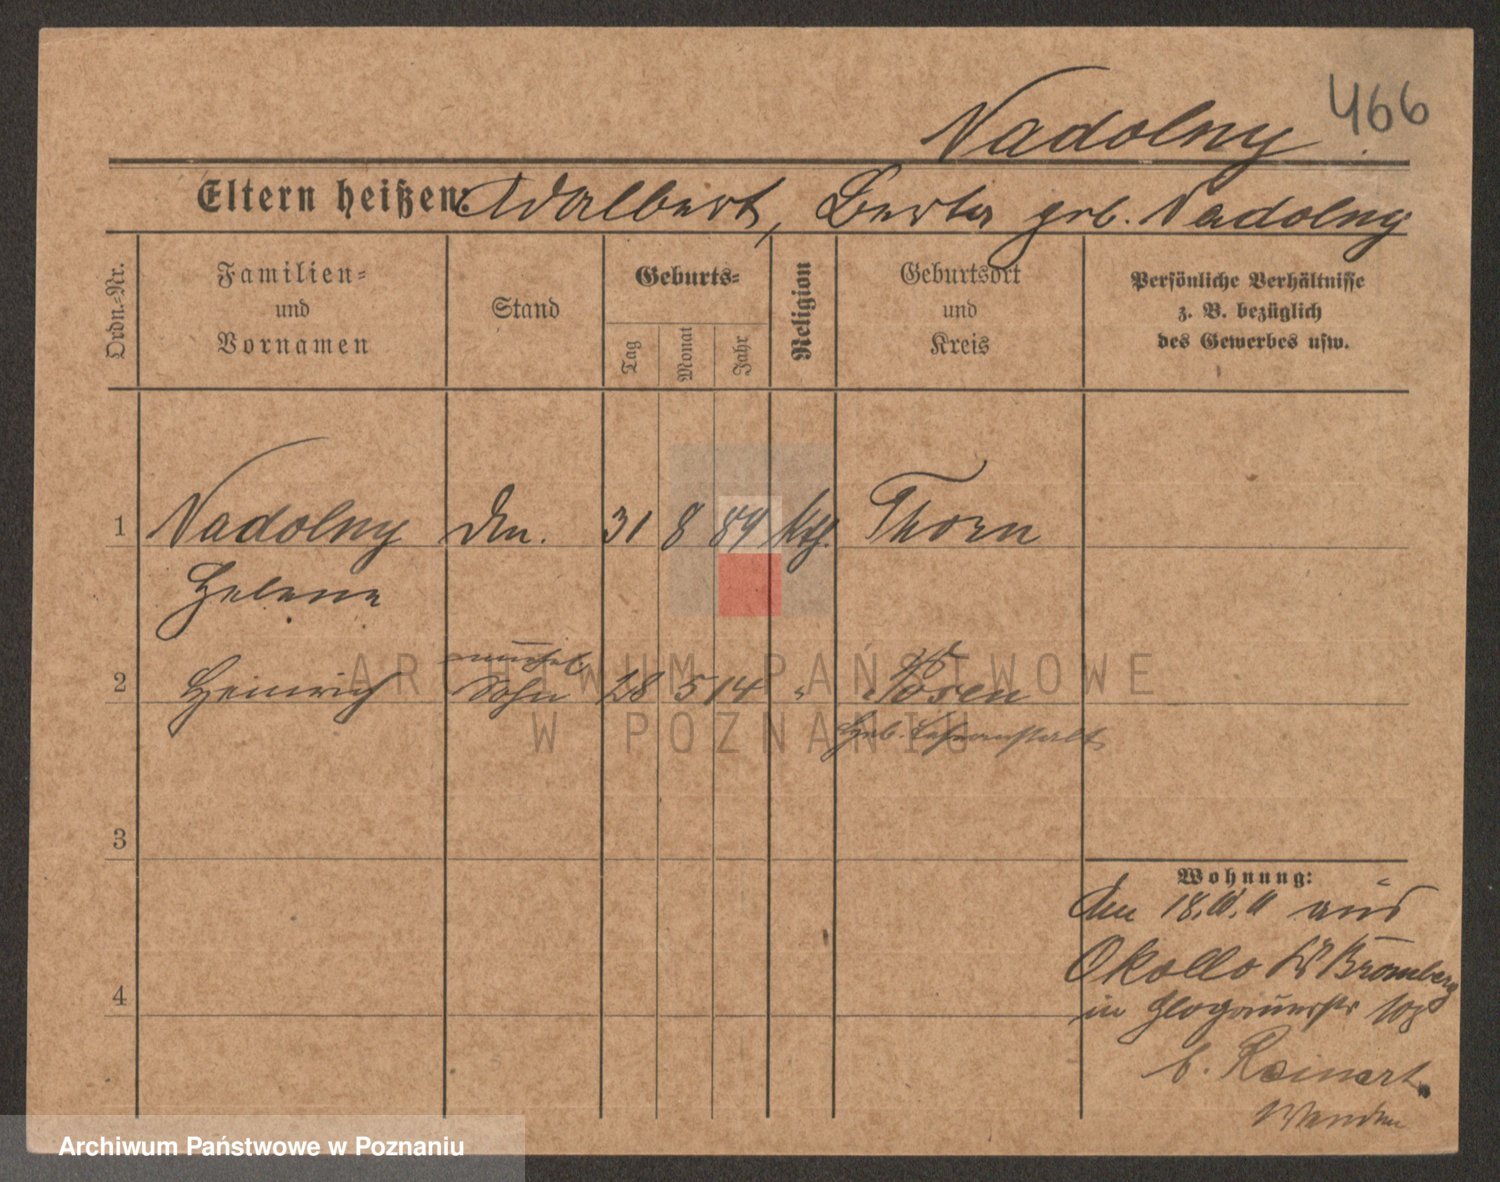 466
Nadolny
Eltern heißen: Adalbert, Berta geb. Nadolny
Ordn.-Nr.
Familien-
und
Vornamen
Stand
Geburts-
Tag
Monat
Jahr
Religion
Geburtsort
und
Kreis
Persönliche Verhältnisse
z. B. bezüglich
des Gewerbes usw.
1 Nadolny 31 8 89 kth. Thorn
Helene
unehel.
2 Heinrich Sohn 28 5 14 " Posen
Heb. Lehranstalt
3
4
Wohnung:
den 18. aus
Okollo Bromberg
in Glogauerstr 108
b. Reinert
Wenden
ARCHIWUM PAŃSTWOWE
W POZNANIU
Archiwum Państwowe w Poznaniu